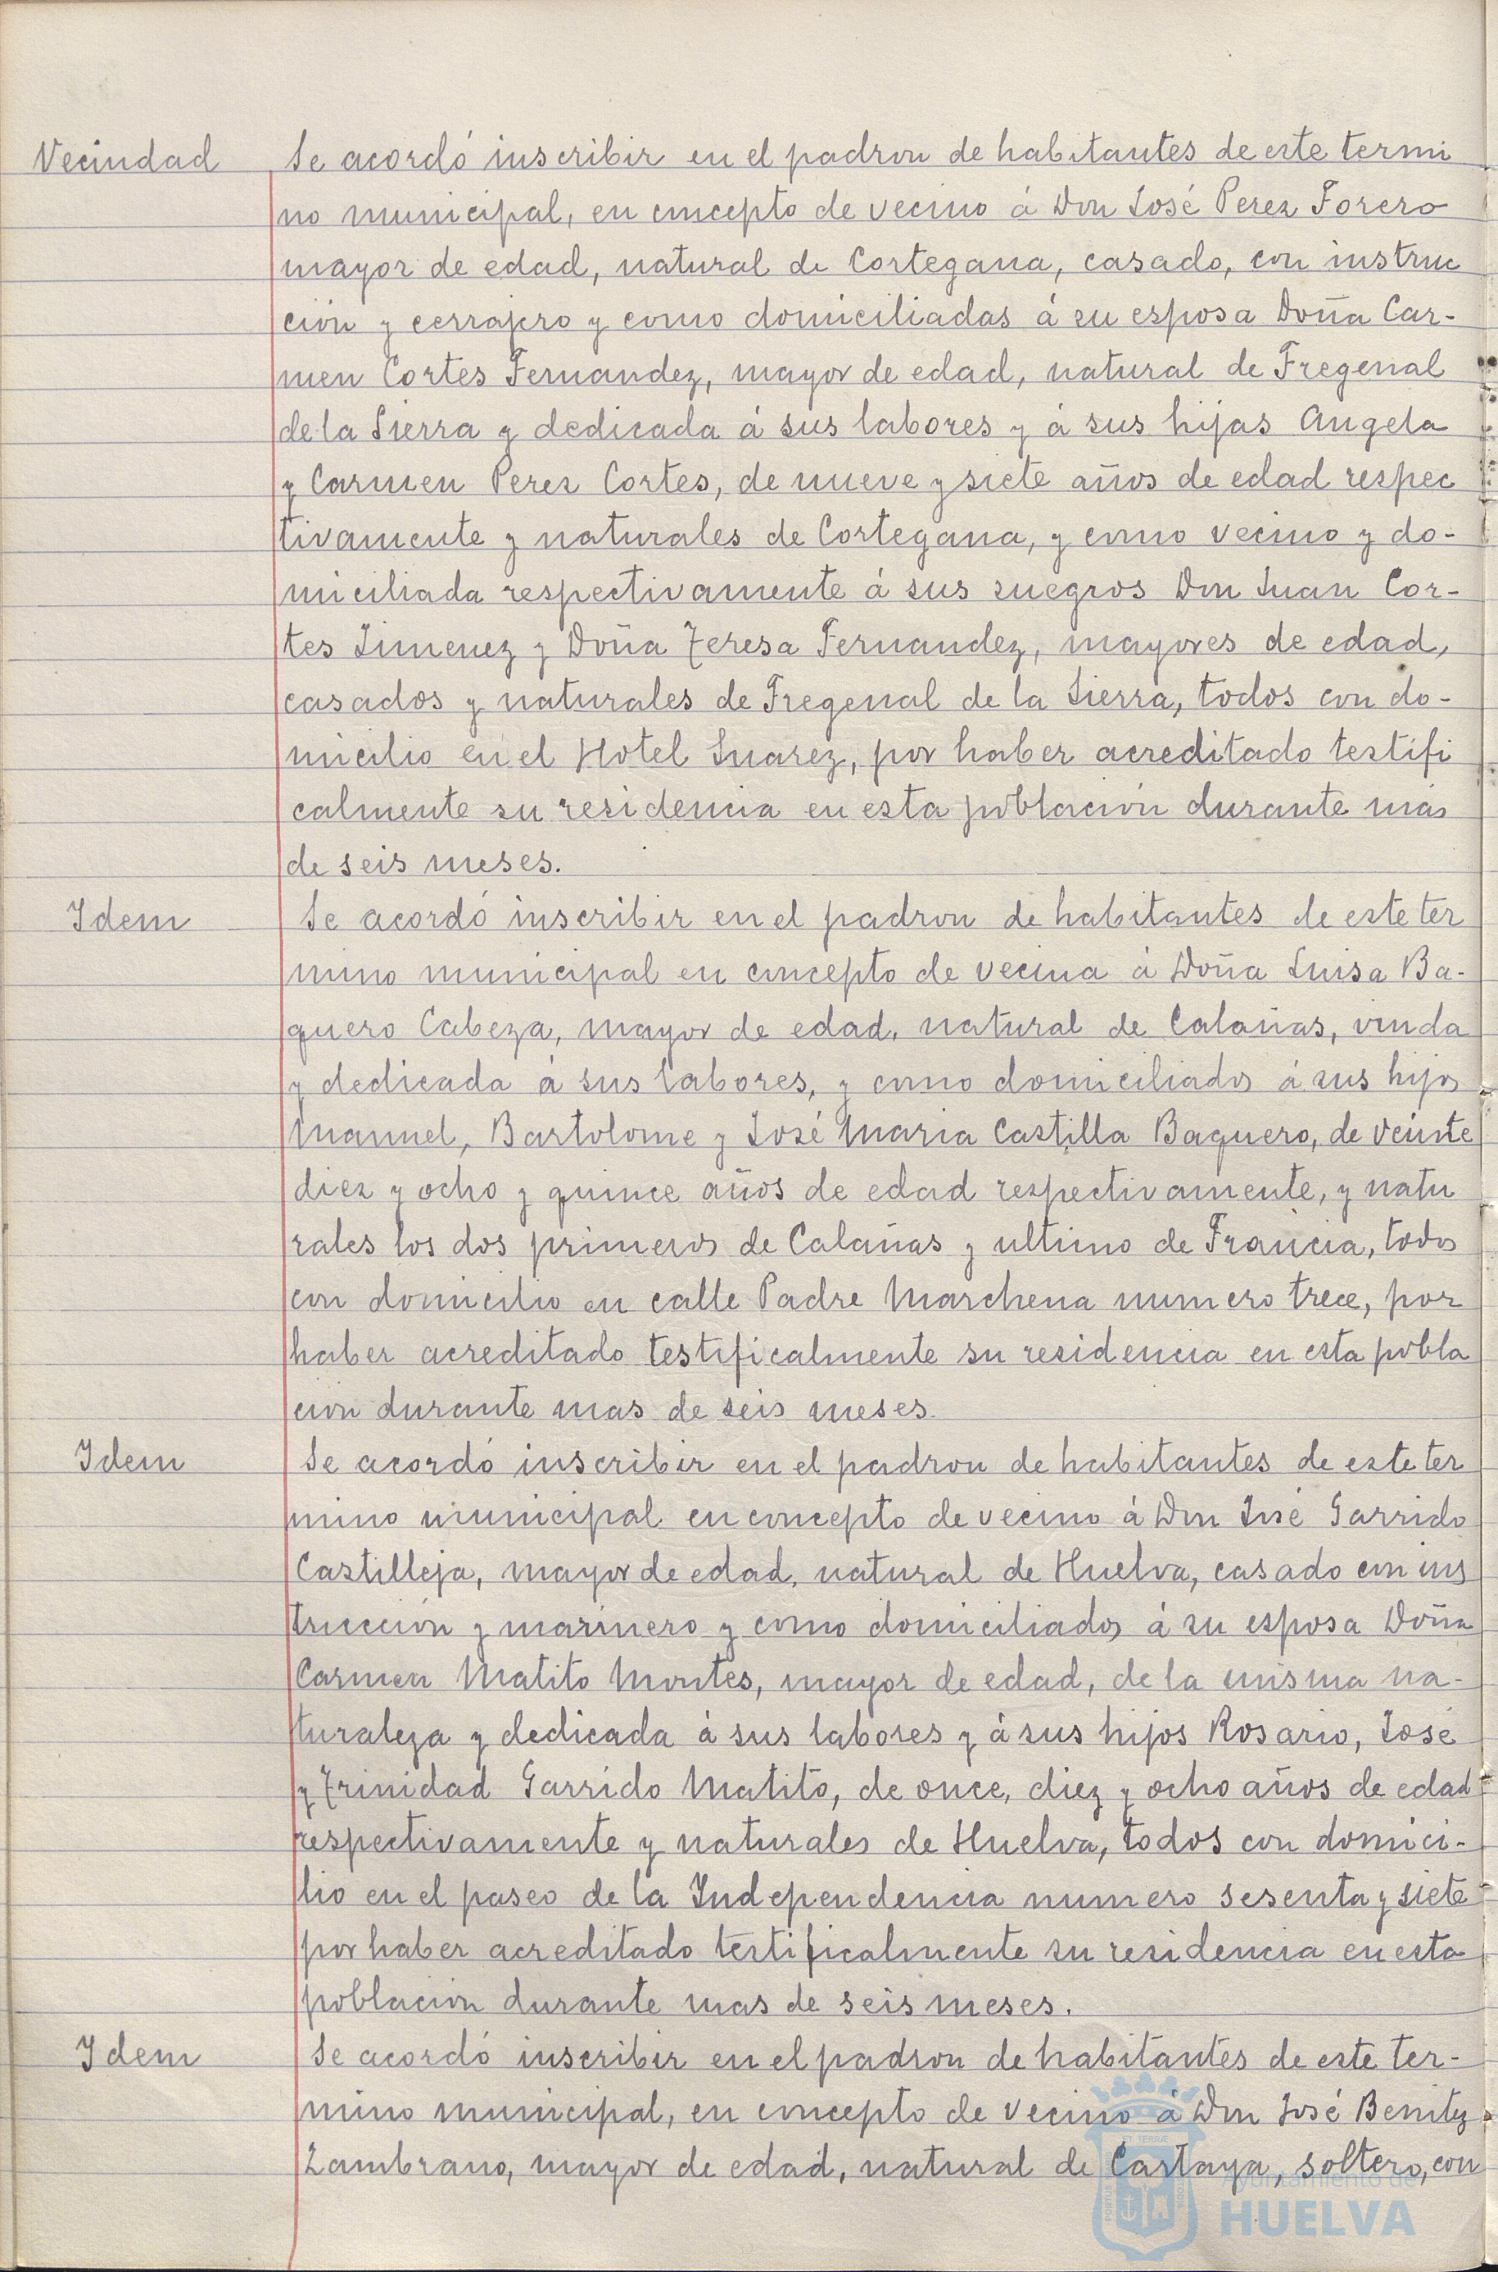 Vecindad
Se acordó inscribir en el padron de habitantes de este termi
no municipal, en concepto de vecino á Don José Perez Forero
mayor de edad, natural de Cortegana, casado, con instruc
ción y cerrajero y como domiciliadas á su esposa Doña Car-
men Cortes Fernandez, mayor de edad, natural de Fregenal
de la Sierra y dedicada á sus labores y á sus hijas Angela
y Carmen Perez Cortes, de nueve y siete años de edad respec
tivamente y naturales de Cortegana, y como vecino y do-
miciliada respectivamente á sus suegros Don Juan Cor-
tes Jimenez y Doña Teresa Fernandez, mayores de edad,
casados y naturales de Fregenal de la Sierra, todos con do-
micilio en el Hotel Suarez, por haber acreditado testifi
calmente su residencia en esta población durante más
de seis meses.
Idem
Se acordó inscribir en el padron de habitantes de este ter
mino municipal en concepto de vecina á Doña Luisa Ba-
quero Cabeza, mayor de edad, natural de Calañas, viuda
y dedicada á sus labores, y como domiciliados á sus hijos
Manuel, Bartolome y José Maria Castilla Baquero, de veinte
diez y ocho y quince años de edad respectivamente, y natu
rales los dos primeros de Calañas y ultimo de Francia, todos
con domicilio en calle Padre Marchena numero trece, por
haber acreditado testificalmente su residencia en esta pobla
cion durante mas de seis meses.
Idem
Se acordó inscribir en el padron de habitantes de este ter
mino municipal en concepto de vecino á Don José Garrido
Castilleja, mayor de edad, natural de Huelva, casado con ins
trucción y marinero y como domiciliados á su esposa Doña
Carmen Matito Montes, mayor de edad, de la misma na-
turaleza y dedicada á sus labores y á sus hijos Rosario, José
y Trinidad Garrido Matito, de once, diez y ocho años de edad
respectivamente y naturales de Huelva, todos con domici-
lio en el paseo de la Independencia numero sesenta y siete
por haber acreditado testificalmente su residencia en esta
población durante mas de seis meses.
Idem
Se acordó inscribir en el padron de habitantes de este ter-
mino municipal, en concepto de vecino á Don José Benitez
Zambrano, mayor de edad, natural de Cartaya, soltero, con
Ayuntamiento de
HUELVA